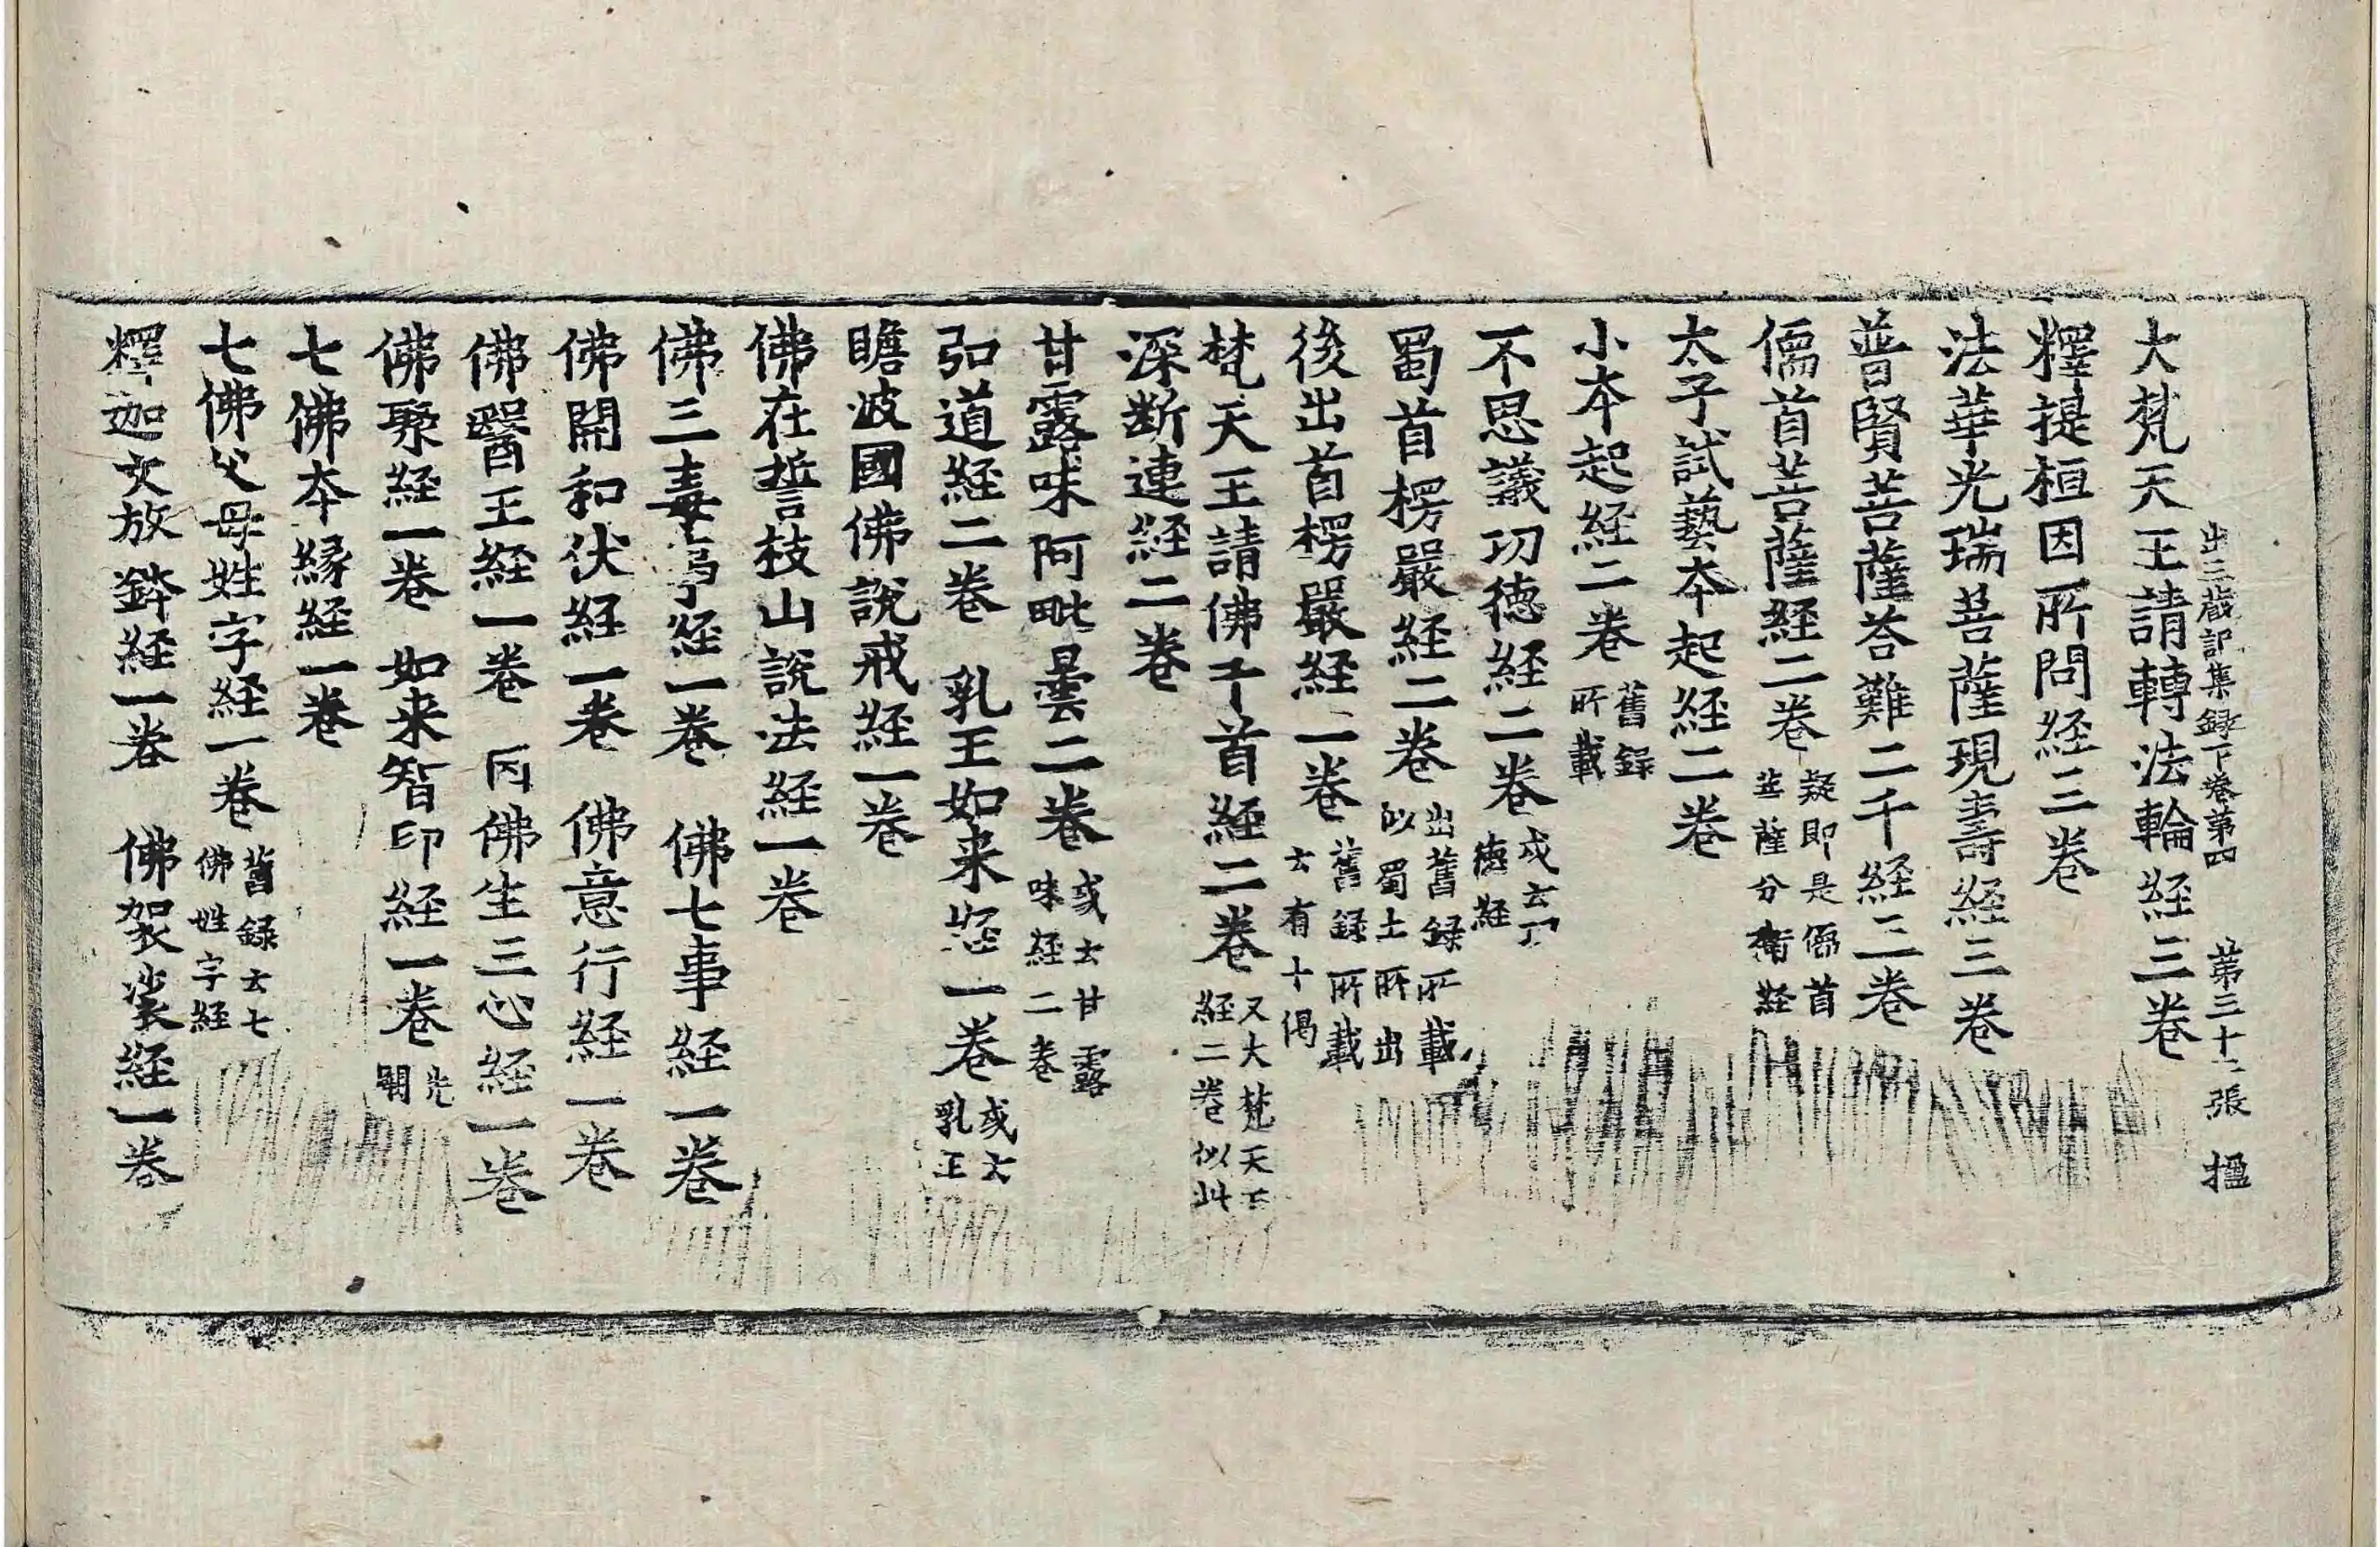 出三蔵記集録下卷第四 第三十二張 揾
大梵天王請轉法輪経三卷
釋提桓因所問経三卷
法華光瑞菩薩現壽経三卷
普賢菩薩荅難二千経三卷
儒首菩薩経二卷 疑即是儒首菩薩分衛経
太子試藝本起経二卷
小本起経二卷 舊録所載
不思議功德経二卷 或云功德経
蜀首楞嚴経二卷 出舊録所載似蜀土所出
後出首楞嚴経二卷 舊録所載云有十偈
梵天王請佛千首経二卷 又大梵天王経二卷似此
深断連経二卷
甘露味阿毗曇二卷 或云甘露味経二卷
弘道経二卷 乳王如来経一卷 或云乳王
瞻波國佛說戒経一卷
佛在誓枝山說法経一卷
佛三毒事経一卷 佛七事経一卷
佛開和伏経一卷 佛意行経一卷
佛醫王経一卷 丙佛生三心経一卷
佛聚経一卷 如来智印経一卷
七佛本縁経一卷
七佛父母姓字経一卷 舊録云七佛姓字経
釋迦文放鉢経一卷 佛袈裟経一卷